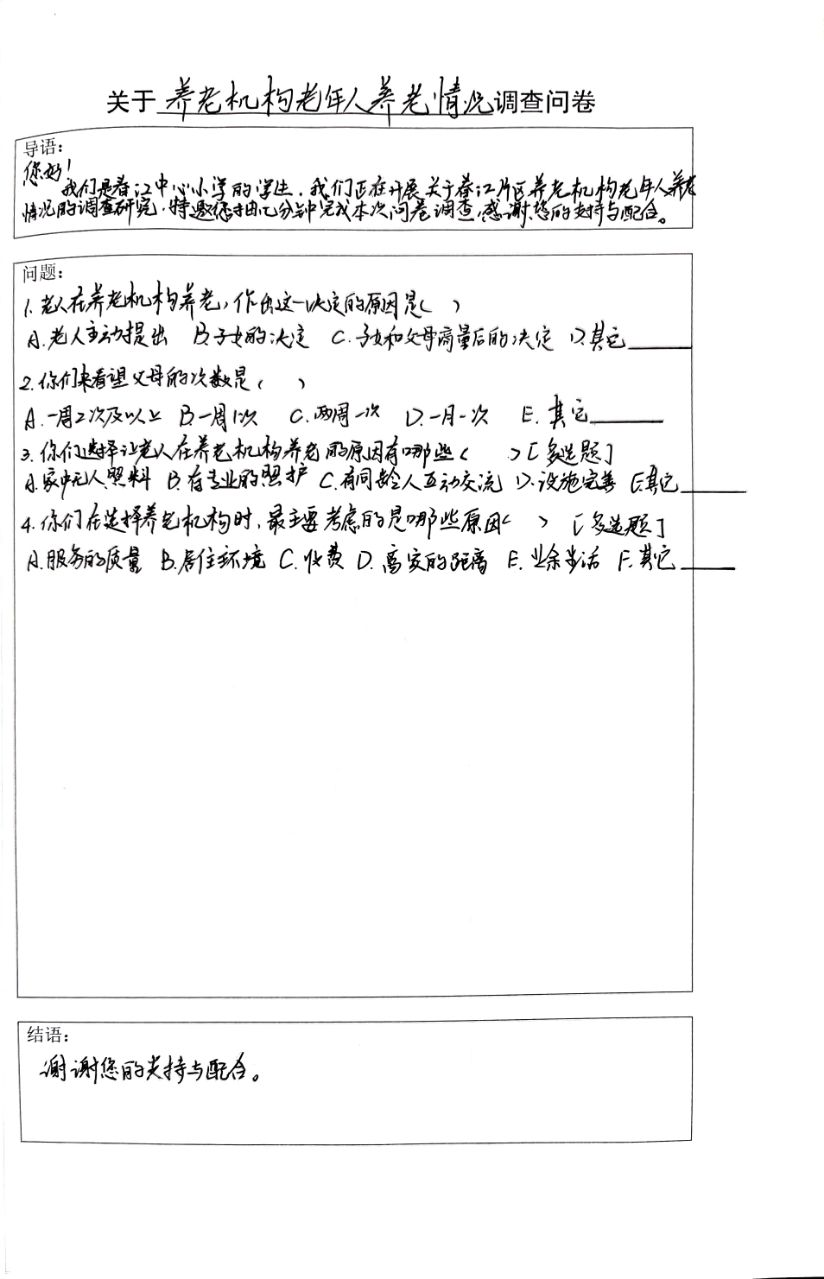 关于 养老机构老年人养老情况调查问卷
导语：
您好！
我们是春江中心小学的学生，我们正在开展关于春江片区养老机构老年人养老
情况的调查研究，特邀您抽几分钟完成本次问卷调查，感谢您的支持与配合。
问题：
1. 老人在养老机构养老，作出这一决定的原因是（ ）
A. 老人主动提出 B. 子女的决定 C. 子女和父母商量后的决定 D. 其它______
2. 你们来看望父母的次数是（ ）
A. 一周2次及以上 B. 一周1次 C. 两周一次 D. 一月一次 E. 其它______
3. 你们选择让老人在养老机构养老的原因有哪些（ ）[多选题]
A. 家中无人照料 B. 有专业的照护 C. 有同龄人互动交流 D. 设施完善 E. 其它______
4. 你们在选择养老机构时，最主要考虑的是哪些原因（ ）[多选题]
A. 服务的质量 B. 居住环境 C. 收费 D. 离家的距离 E. 业余生活 F. 其它______
结语：
谢谢您的支持与配合。